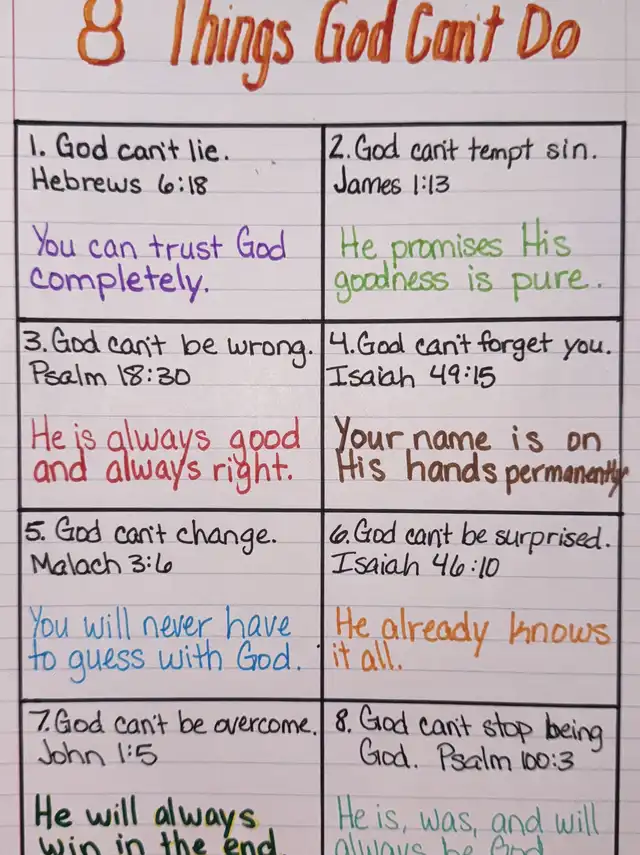 8 Things God Can't Do
1. God can't lie.
Hebrews 6:18
You can trust God
completely.
2. God can't tempt sin.
James 1:13
He promises His
goodness is pure.
3. God can't be wrong.
Psalm 18:30
He is always good
and always right.
4. God can't forget you.
Isaiah 49:15
Your name is on
His hands permanently
5. God can't change.
Malach 3:6
You will never have
to guess with God.
6. God can't be surprised.
Isaiah 46:10
He already knows
it all.
7. God can't be overcome.
John 1:5
He will always
win in the end
8. God can't stop being
God. Psalm 100:3
He is, was, and will
always be God